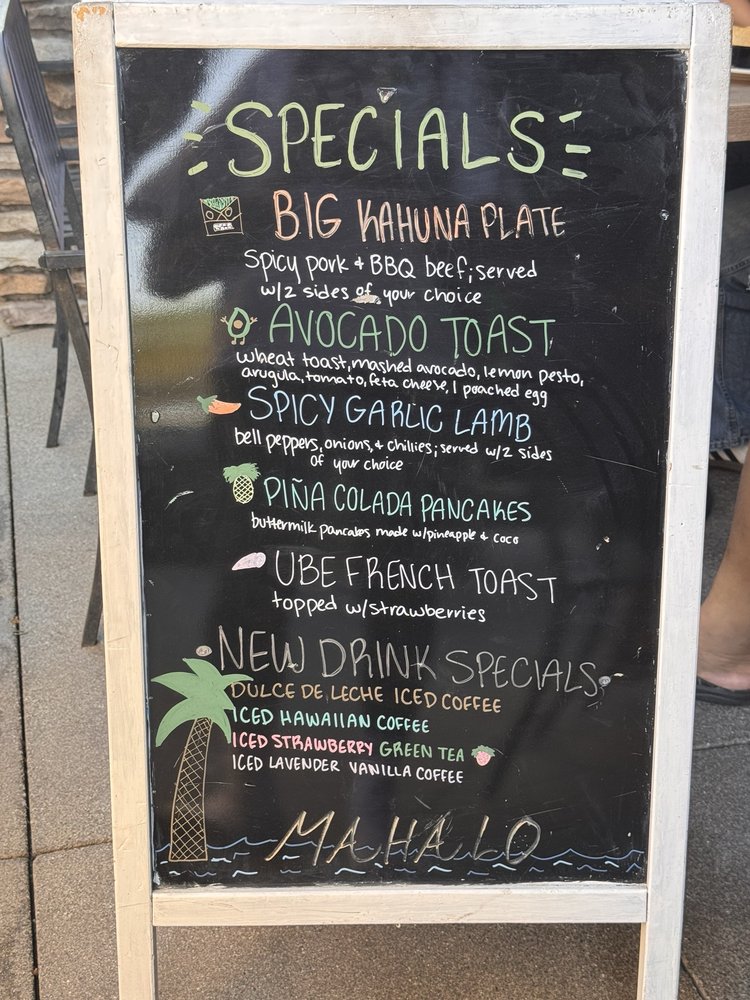 SPECIALS
BIG KAHUNA PLATE
spicy pork + BBQ beef; served
w/2 sides of your choice
AVOCADO TOAST
wheat toast, mashed avocado, lemon pesto,
arugula, tomato, feta cheese, 1 poached egg
SPICY GARLIC LAMB
bell peppers, onions, & chillies; served w/2 sides
of your choice
PIÑA COLADA PANCAKES
buttermilk pancakes made w/pineapple & coco
UBE FRENCH TOAST
topped w/strawberries
NEW DRINK SPECIALS
DULCE DE LECHE ICED COFFEE
ICED HAWAIIAN COFFEE
ICED STRAWBERRY GREEN TEA
ICED LAVENDER VANILLA COFFEE
MAHALO